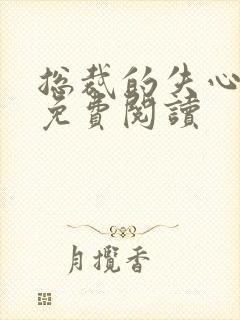 总裁的失心
免費閱讀
月攬香